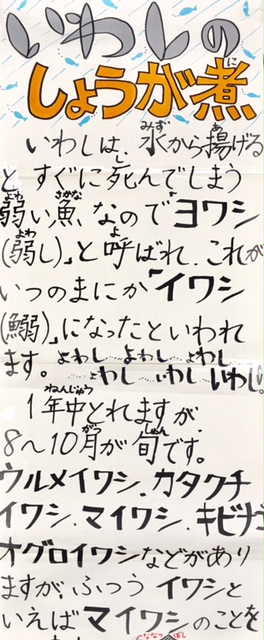 いわしの
しょうが煮
いわしは、水から揚げる
と すぐに死んでしまう
弱い魚、なので「ヨワシ
(弱し)」と呼ばれ、これが
いつのまにか「イワシ
(鰯)」になったといわれ
ます。よわし…よわし…よわし
…よわし…いわし…いわし。
1年中とれますが、
8〜10月が旬です。
ウルメイワシ、カタクチ
イワシ、マイワシ、キビナゴ
オグロイワシなどがあり
ますが、ふつう イワシと
いえばマイワシのことを